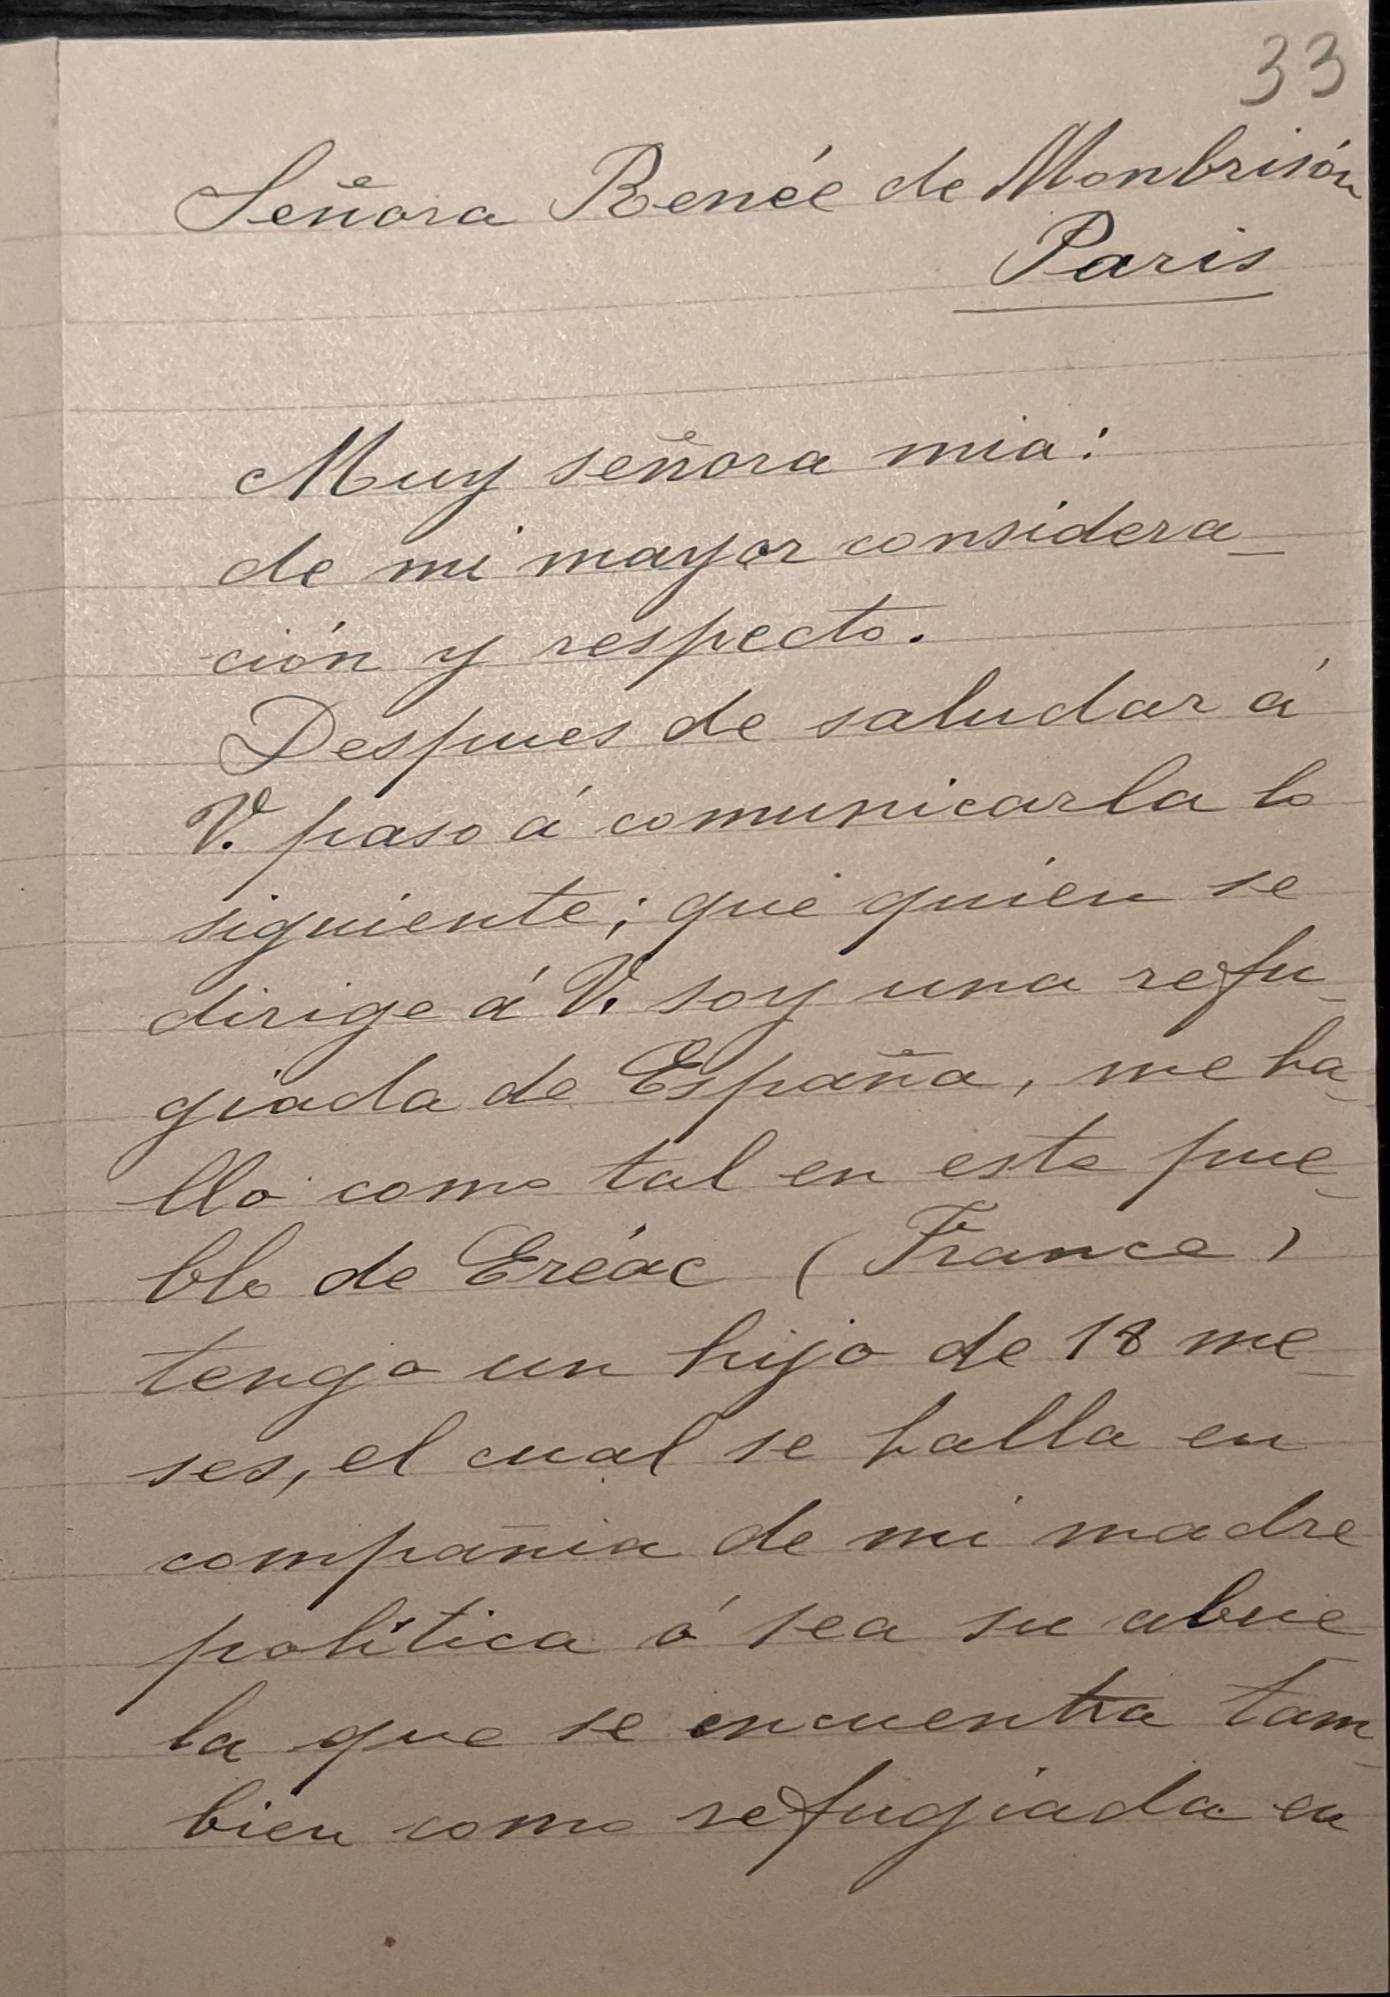 33
Señora Renée de Monbrisón
Paris
Muy señora mia:
de mi mayor considera-
ción y respecto.
Despues de saludar á
V. paso á comunicarla lo
siguiente; que quien se
dirige á V. soy una refu-
giada de España, me ha-
llo como tal en este pue-
blo de Eréac (France)
tengo un hijo de 18 me-
ses, el cual se halla en
compañia de mi madre
política ó sea su abue-
la que se encuentra tam-
bien como refugiada en